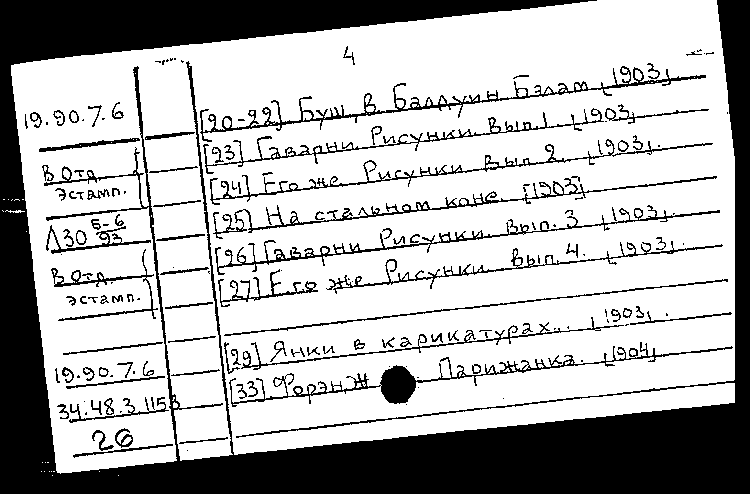 4
19.90.7.6 [20-22] Буш, В. Балдуин Бэлам [1903].
[23] Гаварни. Рисунки. Вып. 1. [1903].
В Отд. [24] Его же. Рисунки. Вып. 2. [1903].
эстамп. [25] На стальном коне. [1903].
Л30 5-6/93 [26] Гаварни. Рисунки. Вып. 3. [1903].
В Отд. [27] Его же. Рисунки. Вып. 4. [1903].
эстамп.
[29] Янки в карикатурах... [1903].
19.90.7.6 [33]. Форэн, Ж Парижанка. [1904]
34.48.3.115
26